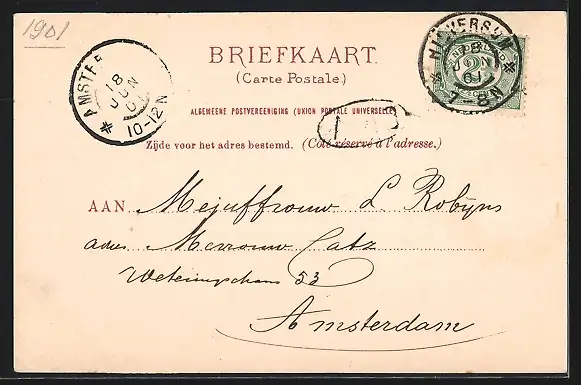 1901
AMSTE
18
JUN
10-12N
BRIEFKAART.
(Carte Postale.)
HILVERSUM
18
JUN
01
7-8N
ALGEMEENE POSTVEREENIGING (UNION POSTALE UNIVERSELLE)
Zijde voor het adres bestemd. (Coté réservé à l'adresse.)
AAN Mejuffrouw L. Robijns
adres Mevrouw Catz
Weteringschans 53
Amsterdam